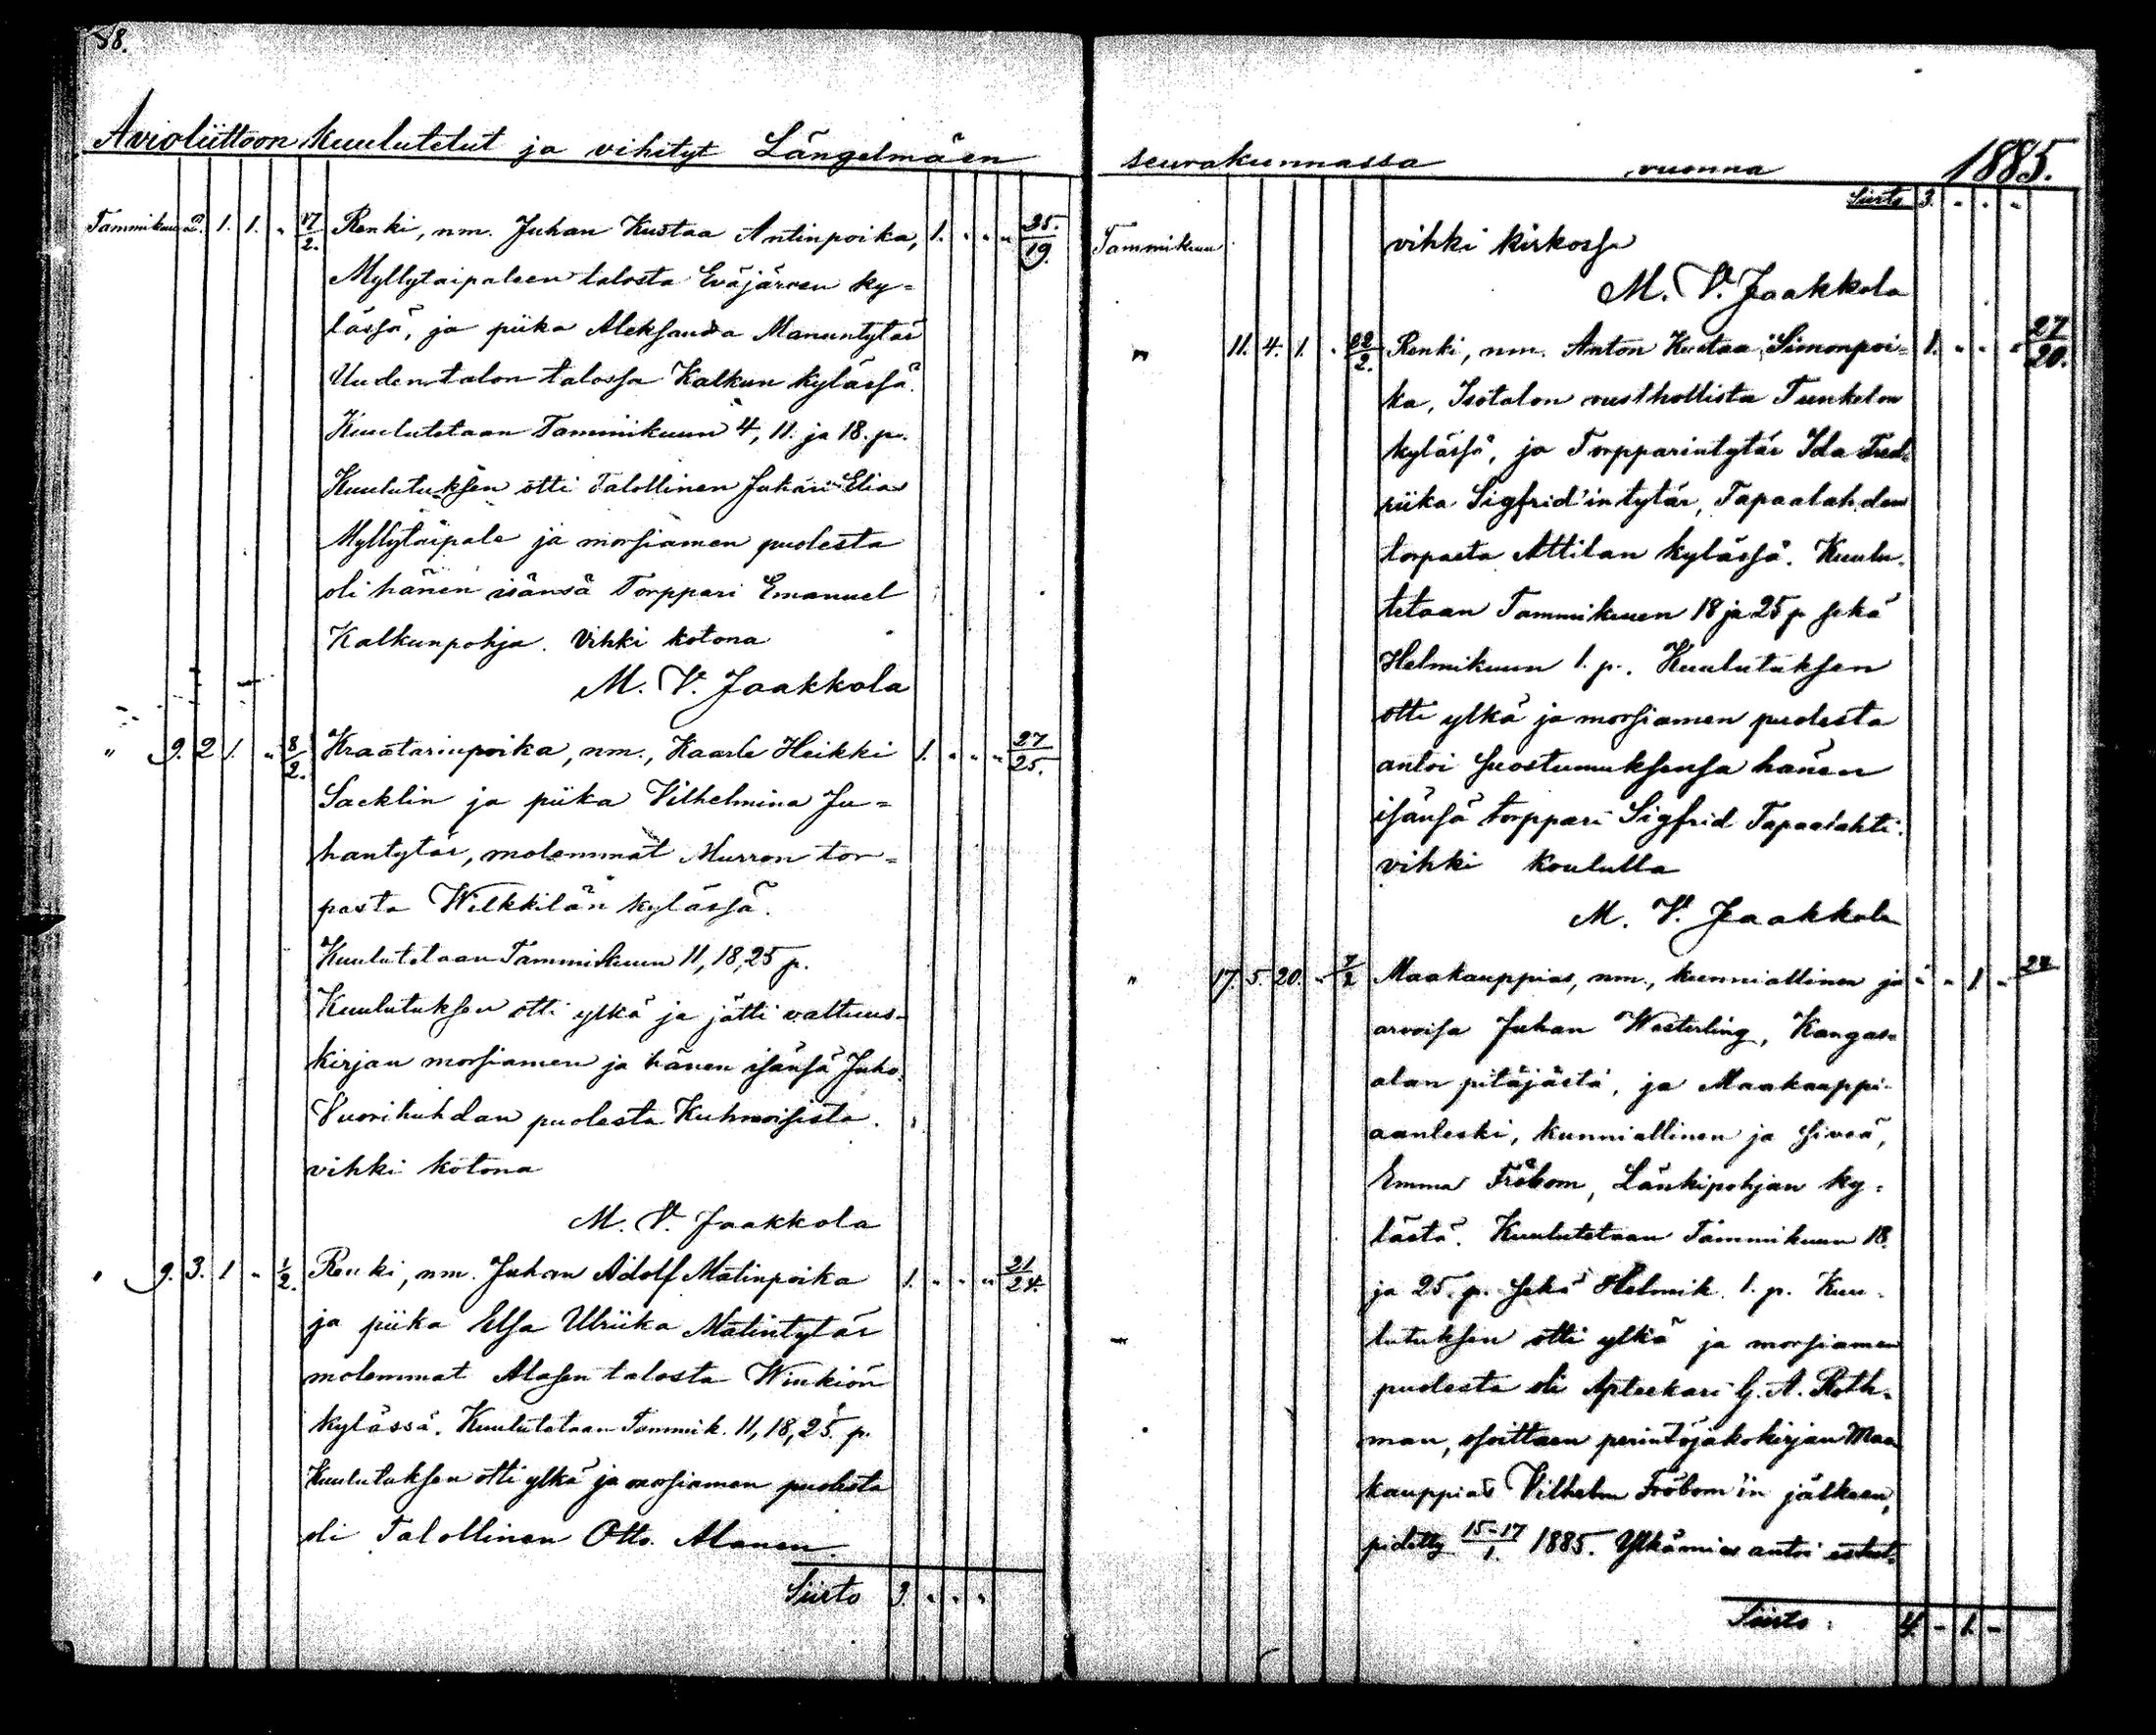 58.
Avioliittoon kuulutetut ja vihityt Längelmäen
Tammikuu 2. 1. 1. " 17/2. Renki, nm. Juhan Kustaa Antinpoika, 1. " " " 35./19.
Myllytaipaleen talosta Eväjärven ky=
lässä, ja piika Aleksandra Manuntytär
Uudentalon talossa Kalkun kylässä.
Kuulutetaan Tammikuun 4, 11. ja 18. p.
Kuulutuksen otti Talollinen Juhani Elias
Myllytaipale ja morsiamen puolesta
oli hänen isänsä Torppari Emanuel
Kalkunpohja. Vihki kotona
M. V. Jaakkola
" 9. 2 1. " 8/2. Kraatarinpoika, nm., Kaarle Heikki 1. " " " 27/25.
Sacklin ja piika Vilhelmina Ju=
hantytär, molemmat Murron tor=
pasta Wilkkilän kylässä.
Kuulutetaan Tammikuun 11, 18, 25 p.
Kuulutuksen otti ylkä ja jätti valtuus=
kirjan morsiamen ja hänen isänsä Juho
Vuorihuhdan puolesta Kuhmoisista.
vihki kotona
M. V. Jaakkola
" 9. 3. 1 " 1/2. Renki, nm. Juhan Adolf Matinpoika 1. " " " 21/24.
ja piika Elsa Ulriika Matintytär
molemmat Alasen talosta Winkiön
kylässä. Kuulutetaan Tammik. 11, 18, 25. p.
Kuulutuksen otti ylkä ja morsiamen puolesta
oli Talollinen Otto Alanen.
Siirto 3. " " "
seurakunnassa vuonna 1885.
Siirto 3. " " "
Tammikuu vihki kirkossa
M. V. Jaakkola
" 11. 4. 1. " 22/2. Renki, nm. Anton Kustaa Simonpoi= 1. " " " 27/20.
ka, Isotalon rusthollista Tunkelon
kylässä, ja Torpparintytär Ida Fred=
piika Sigfrid'in tytär, Tapaalahden
torpasta Attilan kylässä. Kuulu=
tetaan Tammikuun 18 ja 25 p sekä
Helmikuun 1. p. Kuulutuksen
otti ylkä ja morsiamen puolesta
antoi suostumuksensa hänen
isänsä torppari Sigfrid Tapaalahti.
vihki koululla
M. V. Jaakkola
" 17. 5. 20. " 7/2 Maakauppias, nm., kunniallinen ja " " 1. "
arvoisa Juhan Westerling, Kangas=
alan pitäjästä, ja Maakauppi=
aanleski, kunniallinen ja siveä,
Emma Fröbom, Länkipohjan ky=
lästä. Kuulutetaan Tammikuun 18.
ja 25. p. sekä Helmik. 1. p. Kuu=
lutuksen otti ylkä ja morsiamen
puolesta oli Apteekari G. A. Roth=
man, osoittaen perintöjakokirjan Maa
kauppias Vilhelm Fröbom'in jälkeen,
pidetty 15-17/1. 1885. Ylkämies antoi
Siirto. 4. " 1. "